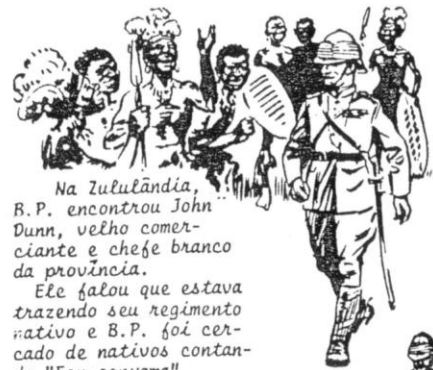 Na Zululândia,
B.P. encontrou John
Dunn, velho comer-
ciante e chefe branco
da província.
Ele falou que estava
trazendo seu regimento
nativo e B.P. foi cer-
cado de nativos contan-